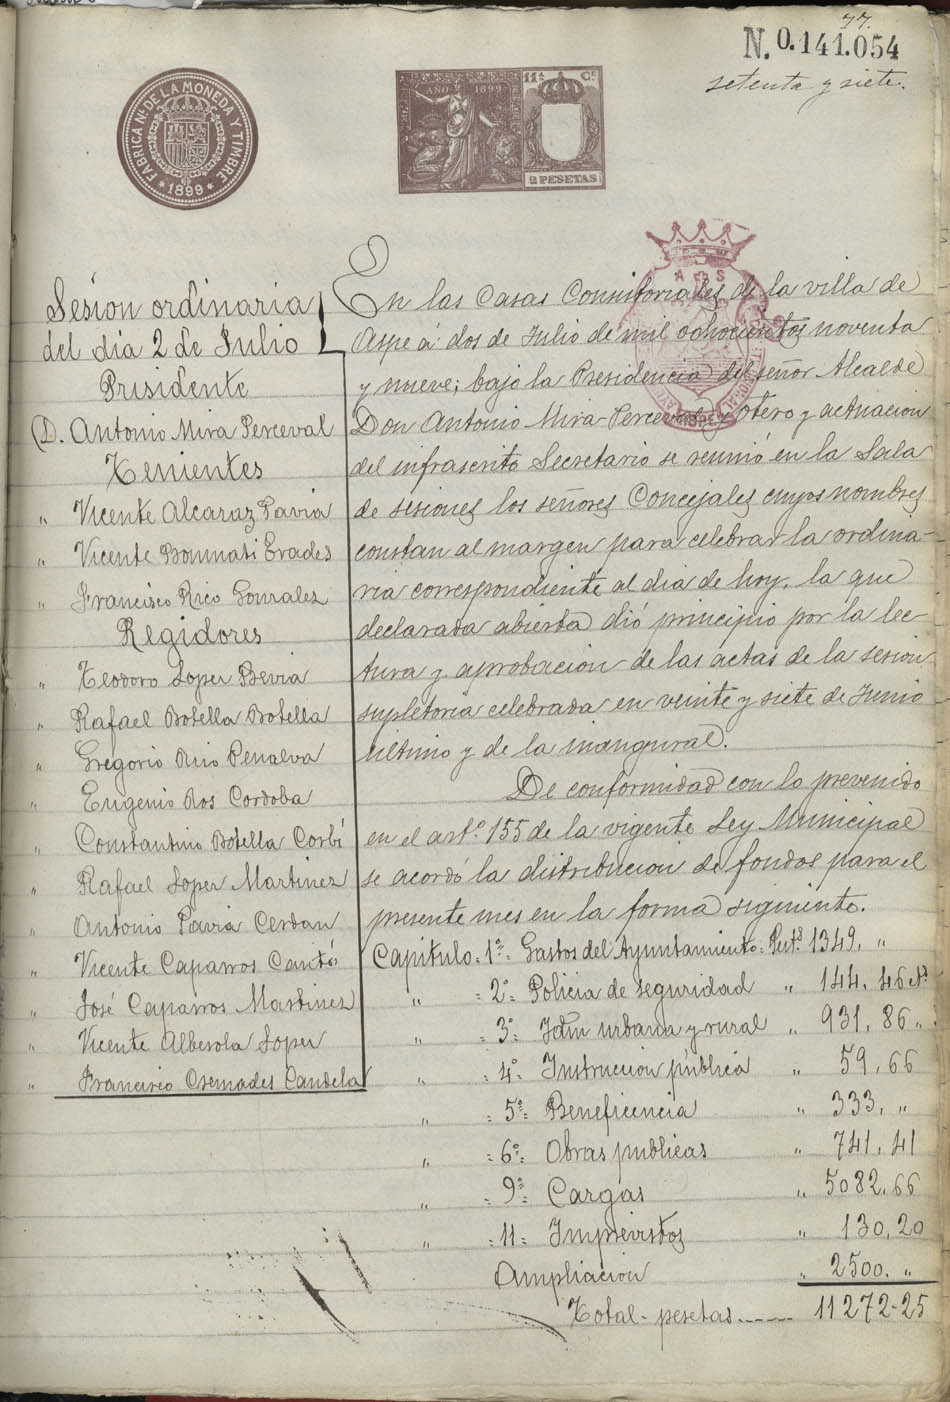 77.
N. 0.141.054
setenta y siete.
FABRICA Nl. DE LA MONEDA Y TIMBRE
* 1899 *
AÑO 1899
11ª Cª
2 PESETAS
Sesion ordinaria
del dia 2 de Julio
Presidente
D. Antonio Mira Perceval
Tenientes
" Vicente Alcaraz Pavia
" Vicente Bonmati Erades
" Francisco Rico Gonzalez
Regidores
" Teodoro Loper Bevia
" Rafael Botella Botella
" Gregorio Rico Penalva
" Eugenio Ros Cordoba
" Constantino Botella Corbi
" Rafael Loper Martinez
" Antonio Pavia Cerdan
" Vicente Caparros Cantó
" José Caparros Martinez
" Vicente Alberola Loper
" Francisco Cremades Candela
En las Casas Consistoriales de la villa de
Aspe á dos de Julio de mil ochocientos noventa
y nueve; bajo la Presidencia del señor Alcalde
Don Antonio Mira-Perceval y Otero y actuacion
del infrascrito Secretario se reunió en la Sala
de sesiones los señores Concejales cuyos nombres
constan al margen para celebrar la ordina-
ria correspondiente al dia de hoy, la que
declarada abierta dió principio por la lec-
tura y aprobacion de las actas de la sesion
supletoria celebrada en veinte y siete de Junio
último y de la inaugural.
De conformidad con lo prevenido
en el artº. 155 de la vigente Ley Municipal
se acordó la distribucion de fondos para el
presente mes en la forma siguiente.
Capitulo = 1º = Gastos del Ayuntamiento = Pts. 1349, "
" = 2º = Policia de seguridad " 144, 46
" = 3º = Idm urbana y rural " 931, 86 "
" = 4º = Instruccion pública " 59, 66
" = 5º = Beneficencia " 333, "
" = 6º = Obras publicas " 741, 41
" = 9º = Cargas " 5082, 66
" = 11 = Imprevistos " 130, 20
Ampliacion " 2500, "
Total - pesetas ----- 11272-25